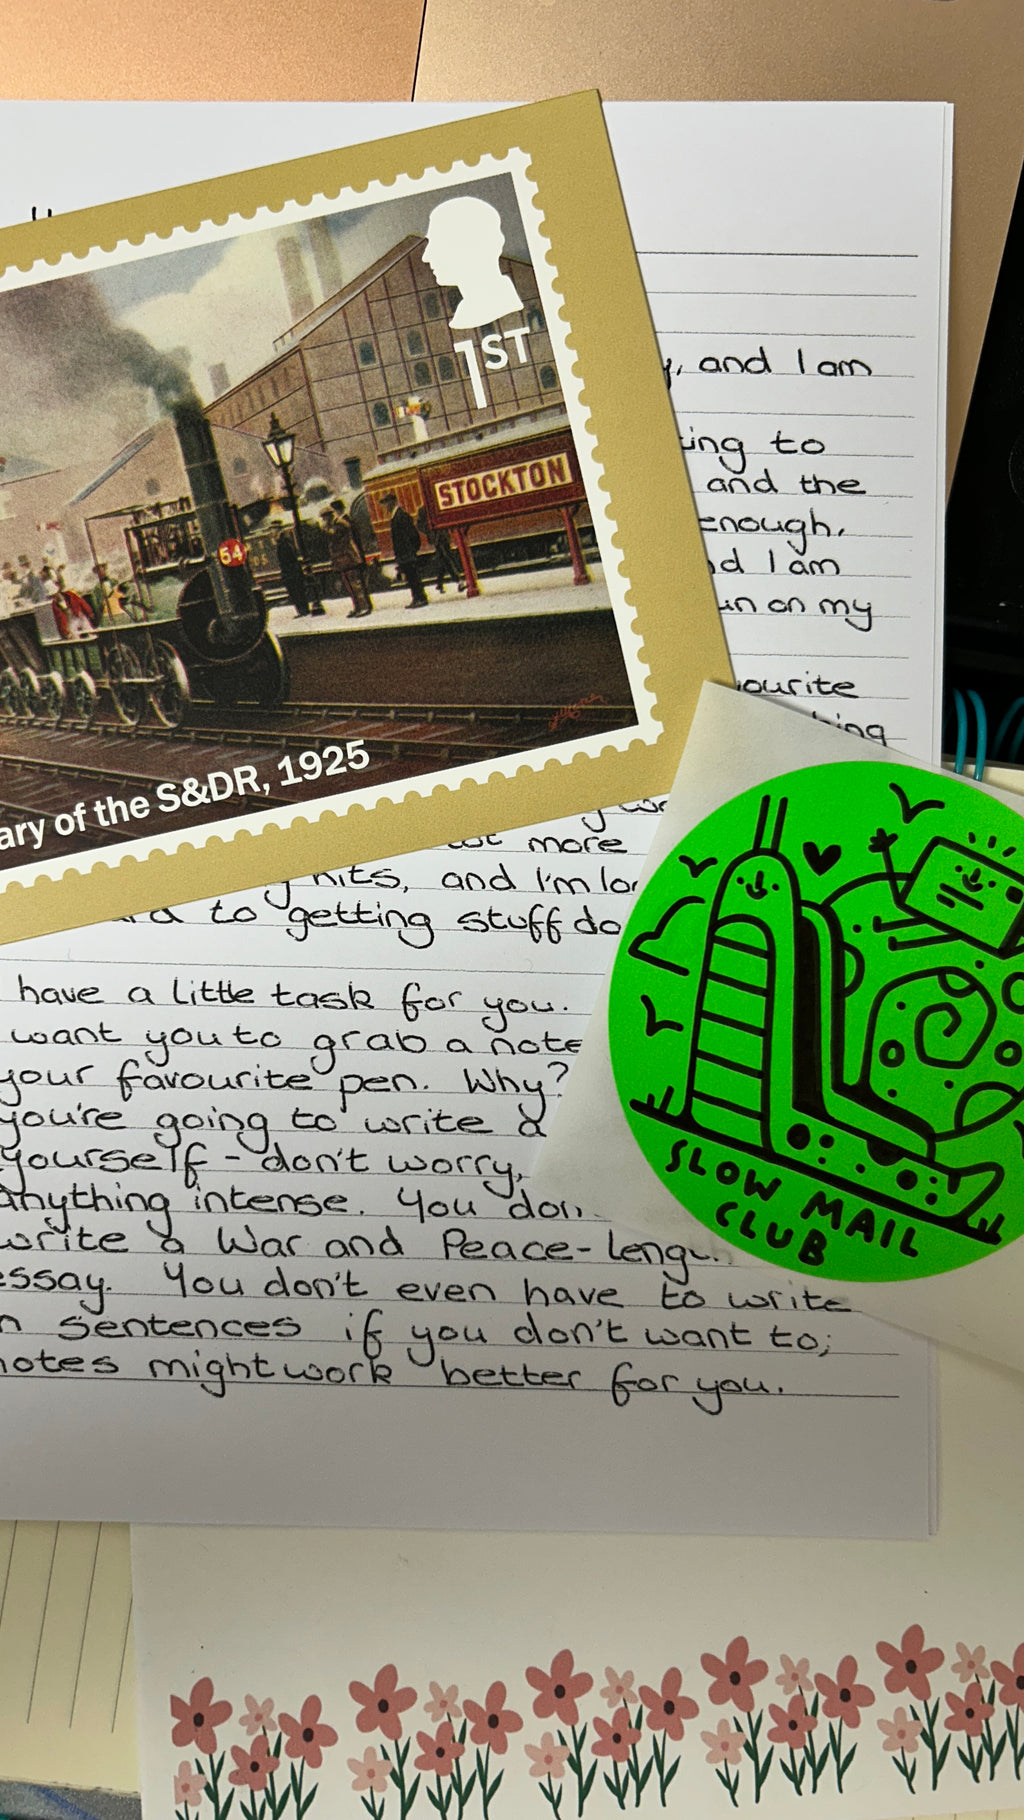 1ST
STOCKTON
54
ary of the S&DR, 1925
, and I am
ing to
and the
enough.
d I am
un on my
ourite
hing
more
kits, and I'm lo
d to getting stuff do
have a little task for you.
want you to grab a note
your favourite pen. Why?
you're going to write a
yourself - don't worry,
anything intense. You don
write a War and Peace-leng
essay. You don't even have to write
n sentences if you don't want to;
notes might work better for you.
SLOW MAIL
CLUB